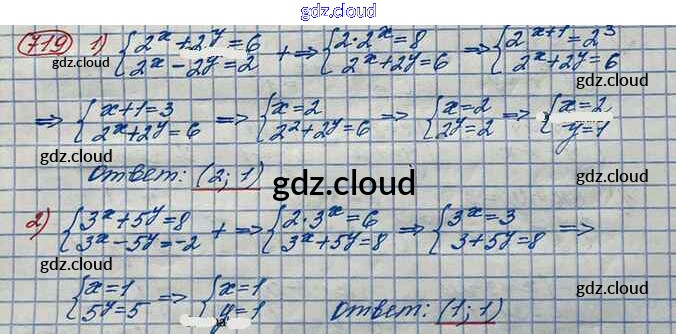 gdz.cloud
719 1) {2^x + 2^y = 6 {2^x - 2^y = 2 + => {2·2^x = 8 {2^x + 2^y = 6 => {2^(x+1) = 2^3 {2^x + 2^y = 6
gdz.cloud gdz.cloud
=> {x+1=3 {2^x + 2^y = 6 => {x=2 {2^2 + 2^y = 6 => {x=2 {2^y = 2 => {x=2 {y=1
gdz.cloud gdz.cloud
Ответ: (2; 1)
gdz.cloud
2) {3^x + 5^y = 8 {3^x - 5^y = -2 + => {2·3^x = 6 {3^x + 5^y = 8 => {3^x = 3 {3 + 5^y = 8 =>
gdz.cloud gdz.cloud
{x=1 {5^y = 5 => {x=1 {y=1 Ответ: (1; 1)
gdz.cloud gdz.cloud